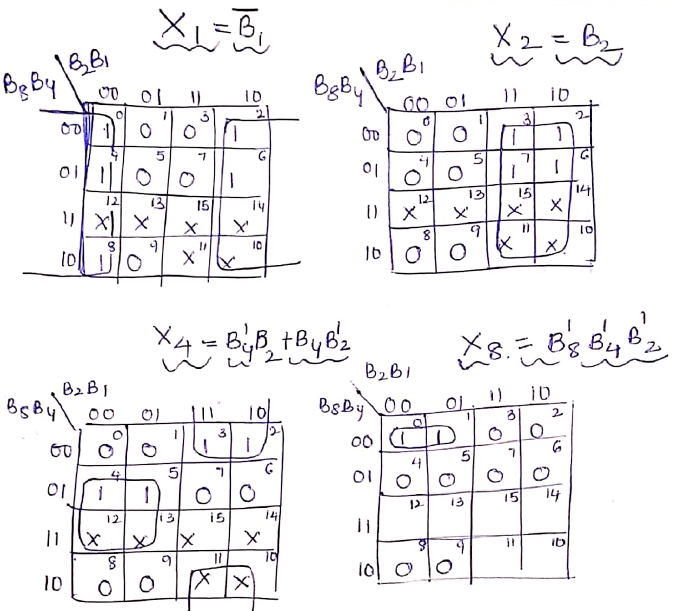 X₁ = B̅₁
B₂B₁
B₈B₄
00 01 11 10
00 1 0 0 1 1 0 3 1 2
01 1 4 0 5 0 7 1 6
11 X 12 X 13 X 15 X 14
10 1 8 0 9 X 11 X 10
X₂ = B₂
B₂B₁
B₈B₄
00 01 11 10
00 0 0 0 1 1 3 1 2
01 0 4 0 5 1 7 1 6
11 X 12 X 13 X 15 X 14
10 0 8 0 9 X 11 X 10
X₄ = B₄'B₂ + B₄B₂'
B₂B₁
B₈B₄
00 01 11 10
00 0 0 0 1 1 3 1 2
01 1 4 1 5 0 7 0 6
11 X 12 X 13 X 15 X 14
10 0 8 0 9 X 11 X 10
X₈ = B₈'B₄'B₂'
B₂B₁
B₈B₄
00 01 11 10
00 1 0 1 1 0 3 0 2
01 0 4 0 5 0 7 0 6
11 12 13 15 14
10 0 8 0 9 11 10